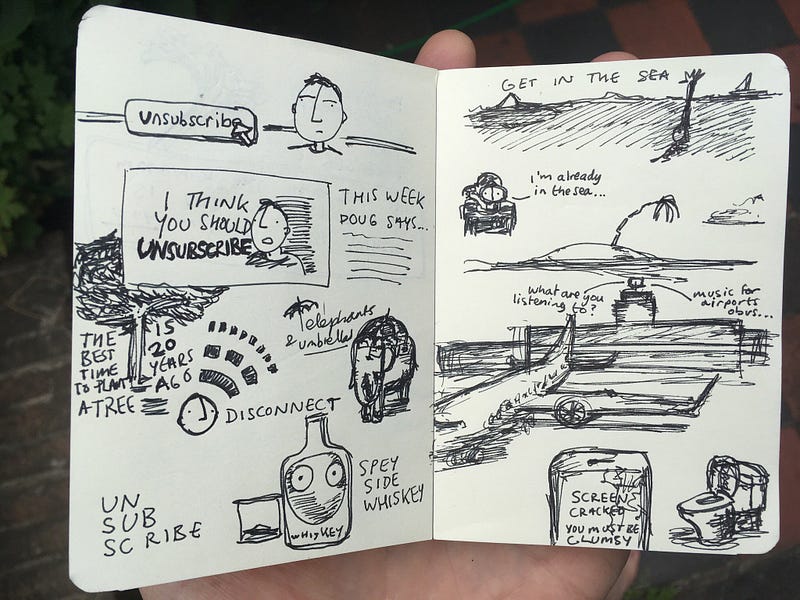 Unsubscribe
I THINK
YOU SHOULD
UNSUBSCRIBE
THIS WEEK
DOUG SAYS...
THE
BEST
TIME
TO PLANT
A TREE
IS
20
YEARS
AGO
elephants
& umbrellas
DISCONNECT
SPEY
SIDE
WHISKEY
WHISKEY
UN
SUB
SCRIBE
GET IN THE SEA
I'm already
in the sea...
what are you
listening to?
music for
airports
obvs...
SCREEN
CRACKED
YOU MUST BE
CLUMSY